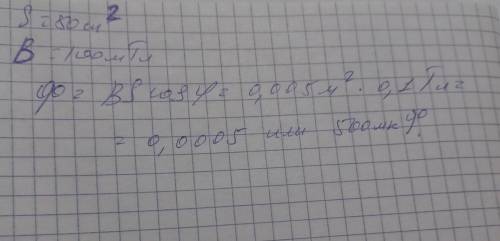 S = 50 см²
B = 100 мТл
Ф = BS cos φ = 0,005 м² · 0,1 Тл =
= 0,0005 или 500 мк Ф.